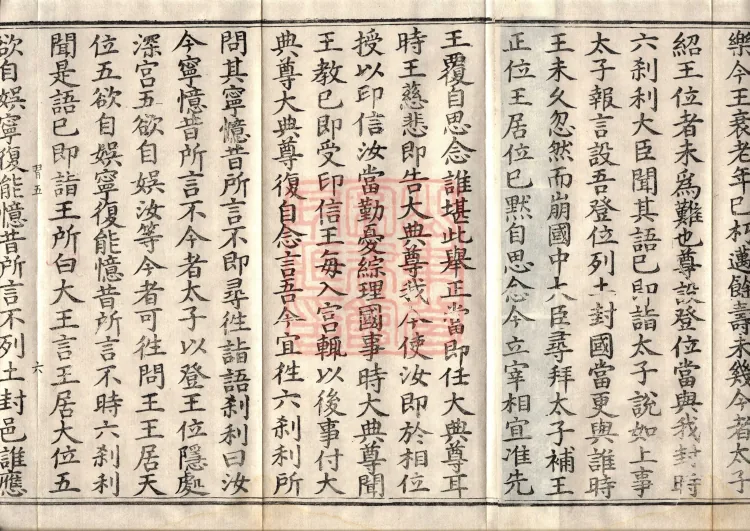 樂今王衰老年已朽邁餘壽未幾今者太子
紹王位者未為難也尊設登位當與我封時
六剎利大臣聞其語已即詣太子說如上事
太子報言設吾登位列土封國當更與誰時
王未久忽然而崩國中大臣尋拜太子補王
正位王居位已默自思念今立宰相宜准先
王覆自思念誰堪此舉正當即任大典尊耳
時王慈悲即告大典尊我今使汝即於相位
授以印信汝當勤憂綜理國事時大典尊聞
王教已即受印信王每入宮輒以後事付大
典尊大典尊復自念言吾今宜往六剎利所
問其寧憶昔所言不即尋往詣語剎利曰汝
今寧憶昔所言不今者太子以登王位隱處
深宮五欲自娛汝等今者可往問王王居天
位五欲自娛寧復能憶昔所言不時六剎利
聞是語已即詣王所白大王言王居大位五
習五
六
欲自娛寧復能憶昔所言不列土封邑誰應